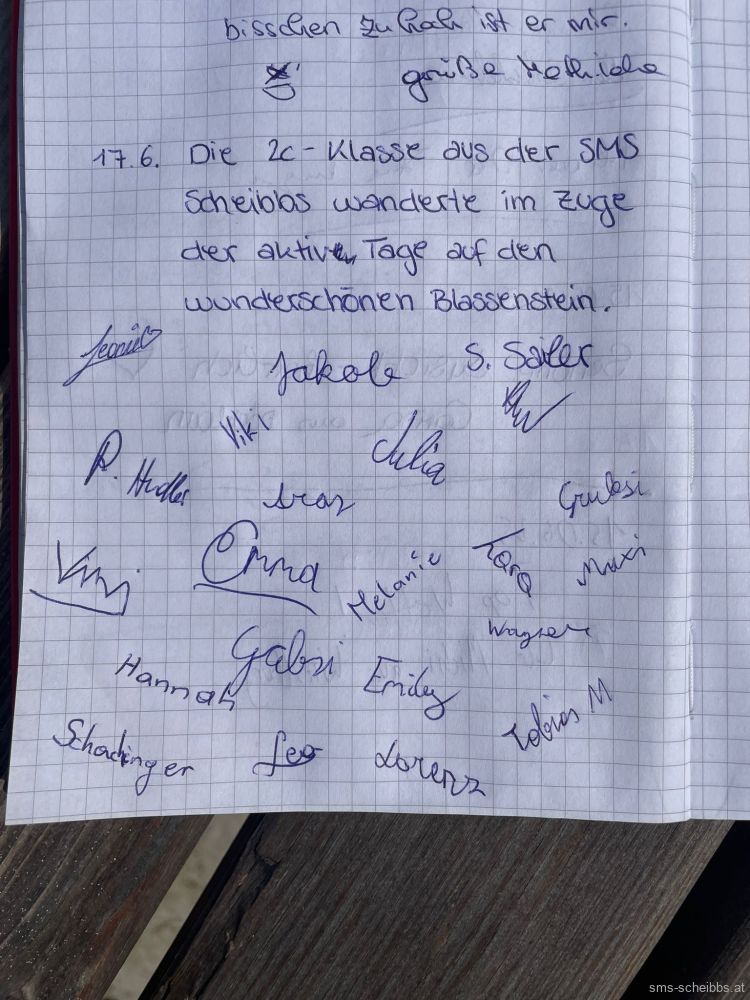 bisschen zu hoch ist er mir.
Grüße Mathilde
17.6. Die 2c-Klasse aus der SMS
Scheibbs wanderte im Zuge
der aktiven Tage auf den
wunderschönen Blassenstein.
Jakob S. Sailer
Viki Julia
P. Hudler
Emma Melanie Tara Maxi
Wagner
Hannah Gabri Emily
Tobias M
Schadinger Leo Lorenz
sms-scheibbs.at